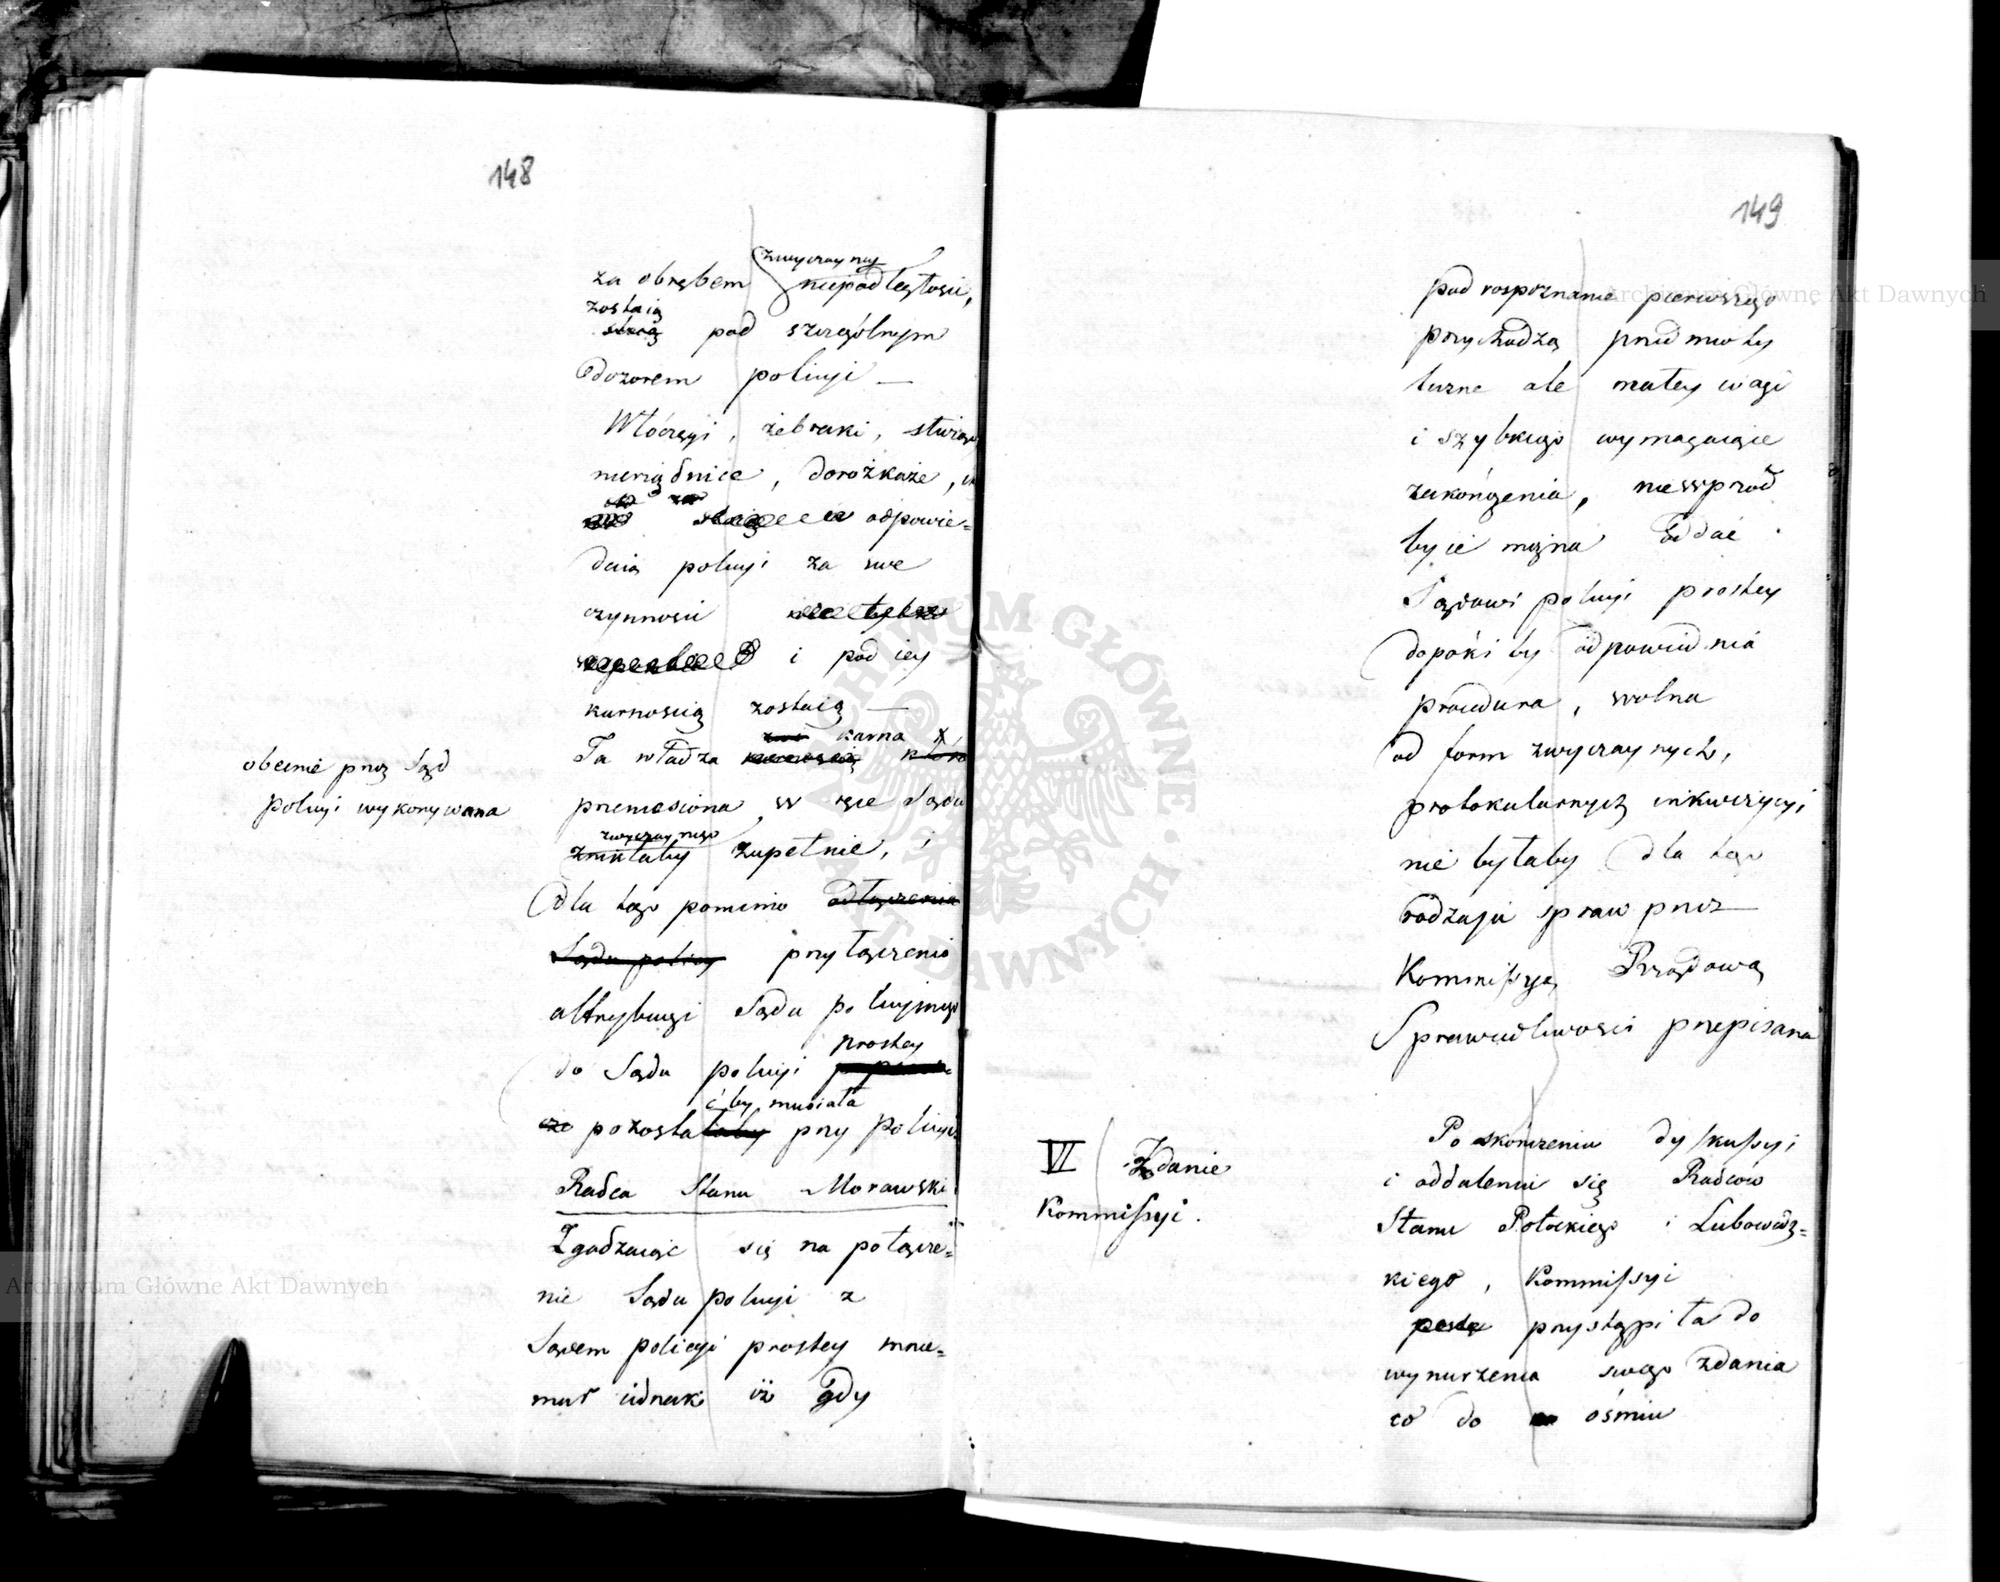 148
zwyczayney
za obrębem niepodległości,
zostaią
pod szczególnym
dozorem policyi —
Włóczęgi, żebraki,
nierządnice, dorożkarze,
odpowie=
policyi za swe
czynności
i pod iey
karnością zostaią —
karna
Ta władza
obecnie przez Sąd
policyi wykonywana
przeniesiona w ręce Sądu
zwyczaynego
znikłaby zupełnie, i
dla tego pomimo odłączenia
Sądu policyi przyłączenia
attrybucyi Sądu policyjnego
prostey
do Sądu policyi
ćby musiała
pozostałaby przy policyi
Radca Stanu Morawski
Zgadzaiąc się na połącze=
nie Sądu policyi z
Sądem policyi prostey mnie=
mał iednak iż gdy
149
pod rospoznanie pierwszego
przychodzą przedmioty
liczne ale małey wagi
i szybkiego wymagaiące
zakończenia, nie wprzód
byie można oddać
Sądowi policyi prostey
dopóki by odpowiednia
procedura, wolna
od form zwyczaynych,
protokularnych inkwizycyi
nie byłaby dla tego
rodzaju spraw przez
Kommissyą Rządową
Sprawiedliwości przepisana
VI Zdanie
Kommissyi.
Po skończeniu dyskussyi
i oddaleniu się Radców
Stanu Potockiego i Lubowidz=
kiego, Kommissyi
przystąpiła do
wynurzenia swego zdania
co do ośmiu
Archiwum Główne Akt Dawnych
Archiwum Główne Akt Dawnych
ARCHIWUM GŁÓWNE AKT DAWNYCH